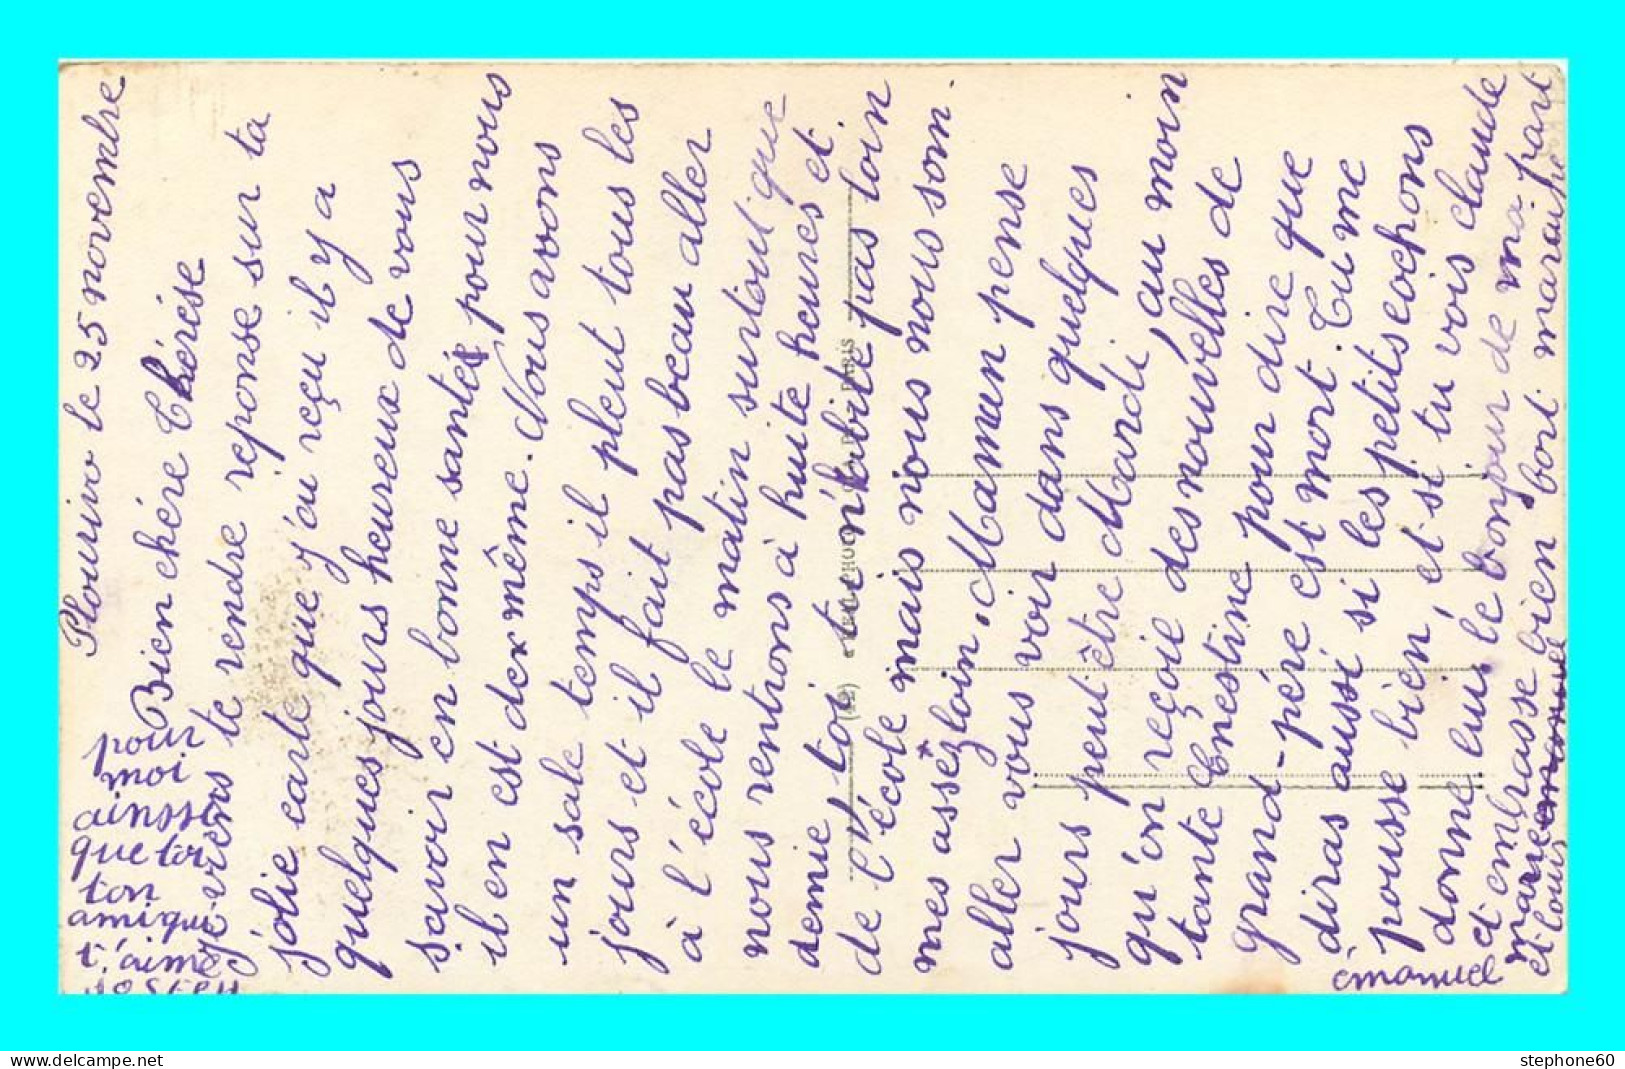 Plourivo le 25 novembre
Bien chére Thérése
je viens te rendre reponse sur ta
jolie carte que j'ai reçu il y a
quelques jours heureux de vous
savoir en bonne santée pour nous
il en est de même. Nous avons
un sale temps il pleut tous les
jours et il fait pas beau aller
à l'école le matin surtout que
nous rentrons à huite heures et
demie, toi tu n'habite pas loin
de l'école mais nous nous som
mes assez loin, Maman pense
aller vous voir dans quelques
jours peut être Mardi, au moin
qu'on reçoit des nouvelles de
tante Ernestine pour dire que
grand-pére est mort. Tu me
diras aussi si les petits cochons
pousse bien, et si tu vois claude
donne lui le bonjour de ma part
et embrasse bien fort
marie
et louis
émanuel
pour
moi
ainssi
que toi
ton
ami qui
t'aime
(12)
PARIS
stephone60